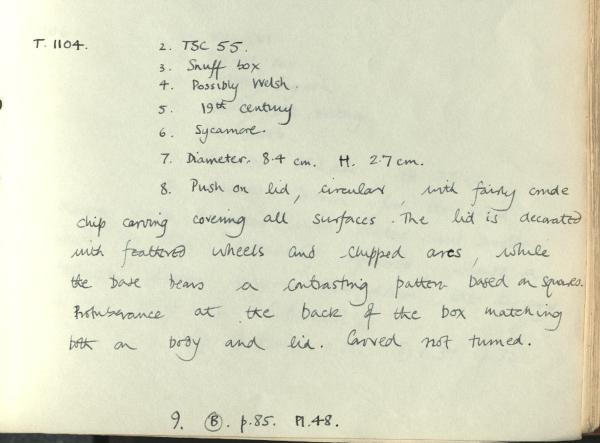 T. 1104. 2. TSC 55.
3. Snuff box
4. Possibly Welsh.
5. 19th century
6. Sycamore.
7. Diameter. 8.4 cm. H. 2.7 cm.
8. Push on lid, circular, with fairly crude
chip carving covering all surfaces. The lid is decorated
with feathered wheels and chipped arcs, while
the base bears a contrasting pattern based on squares.
Protuberance at the back of the box matching
both on body and lid. Carved not turned.
9. (B). p.85. Pl.48.